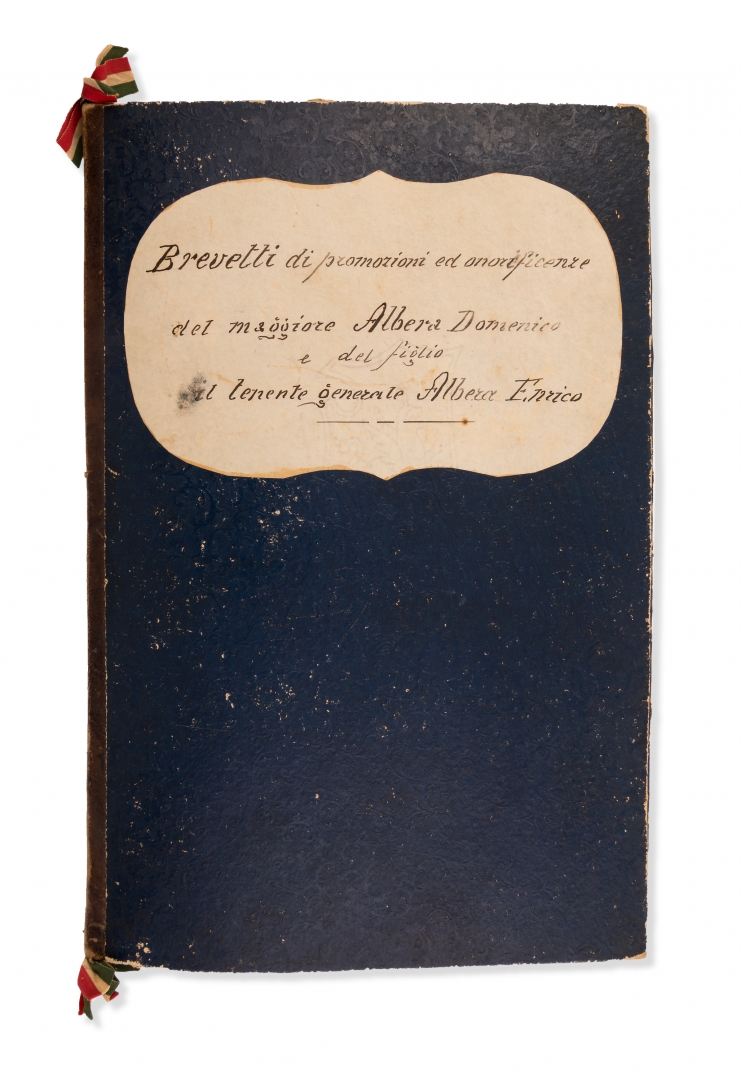 Brevetti di promozioni ed onorificenze
del maggiore Albera Domenico
e del figlio
il tenente generale Albera Enrico